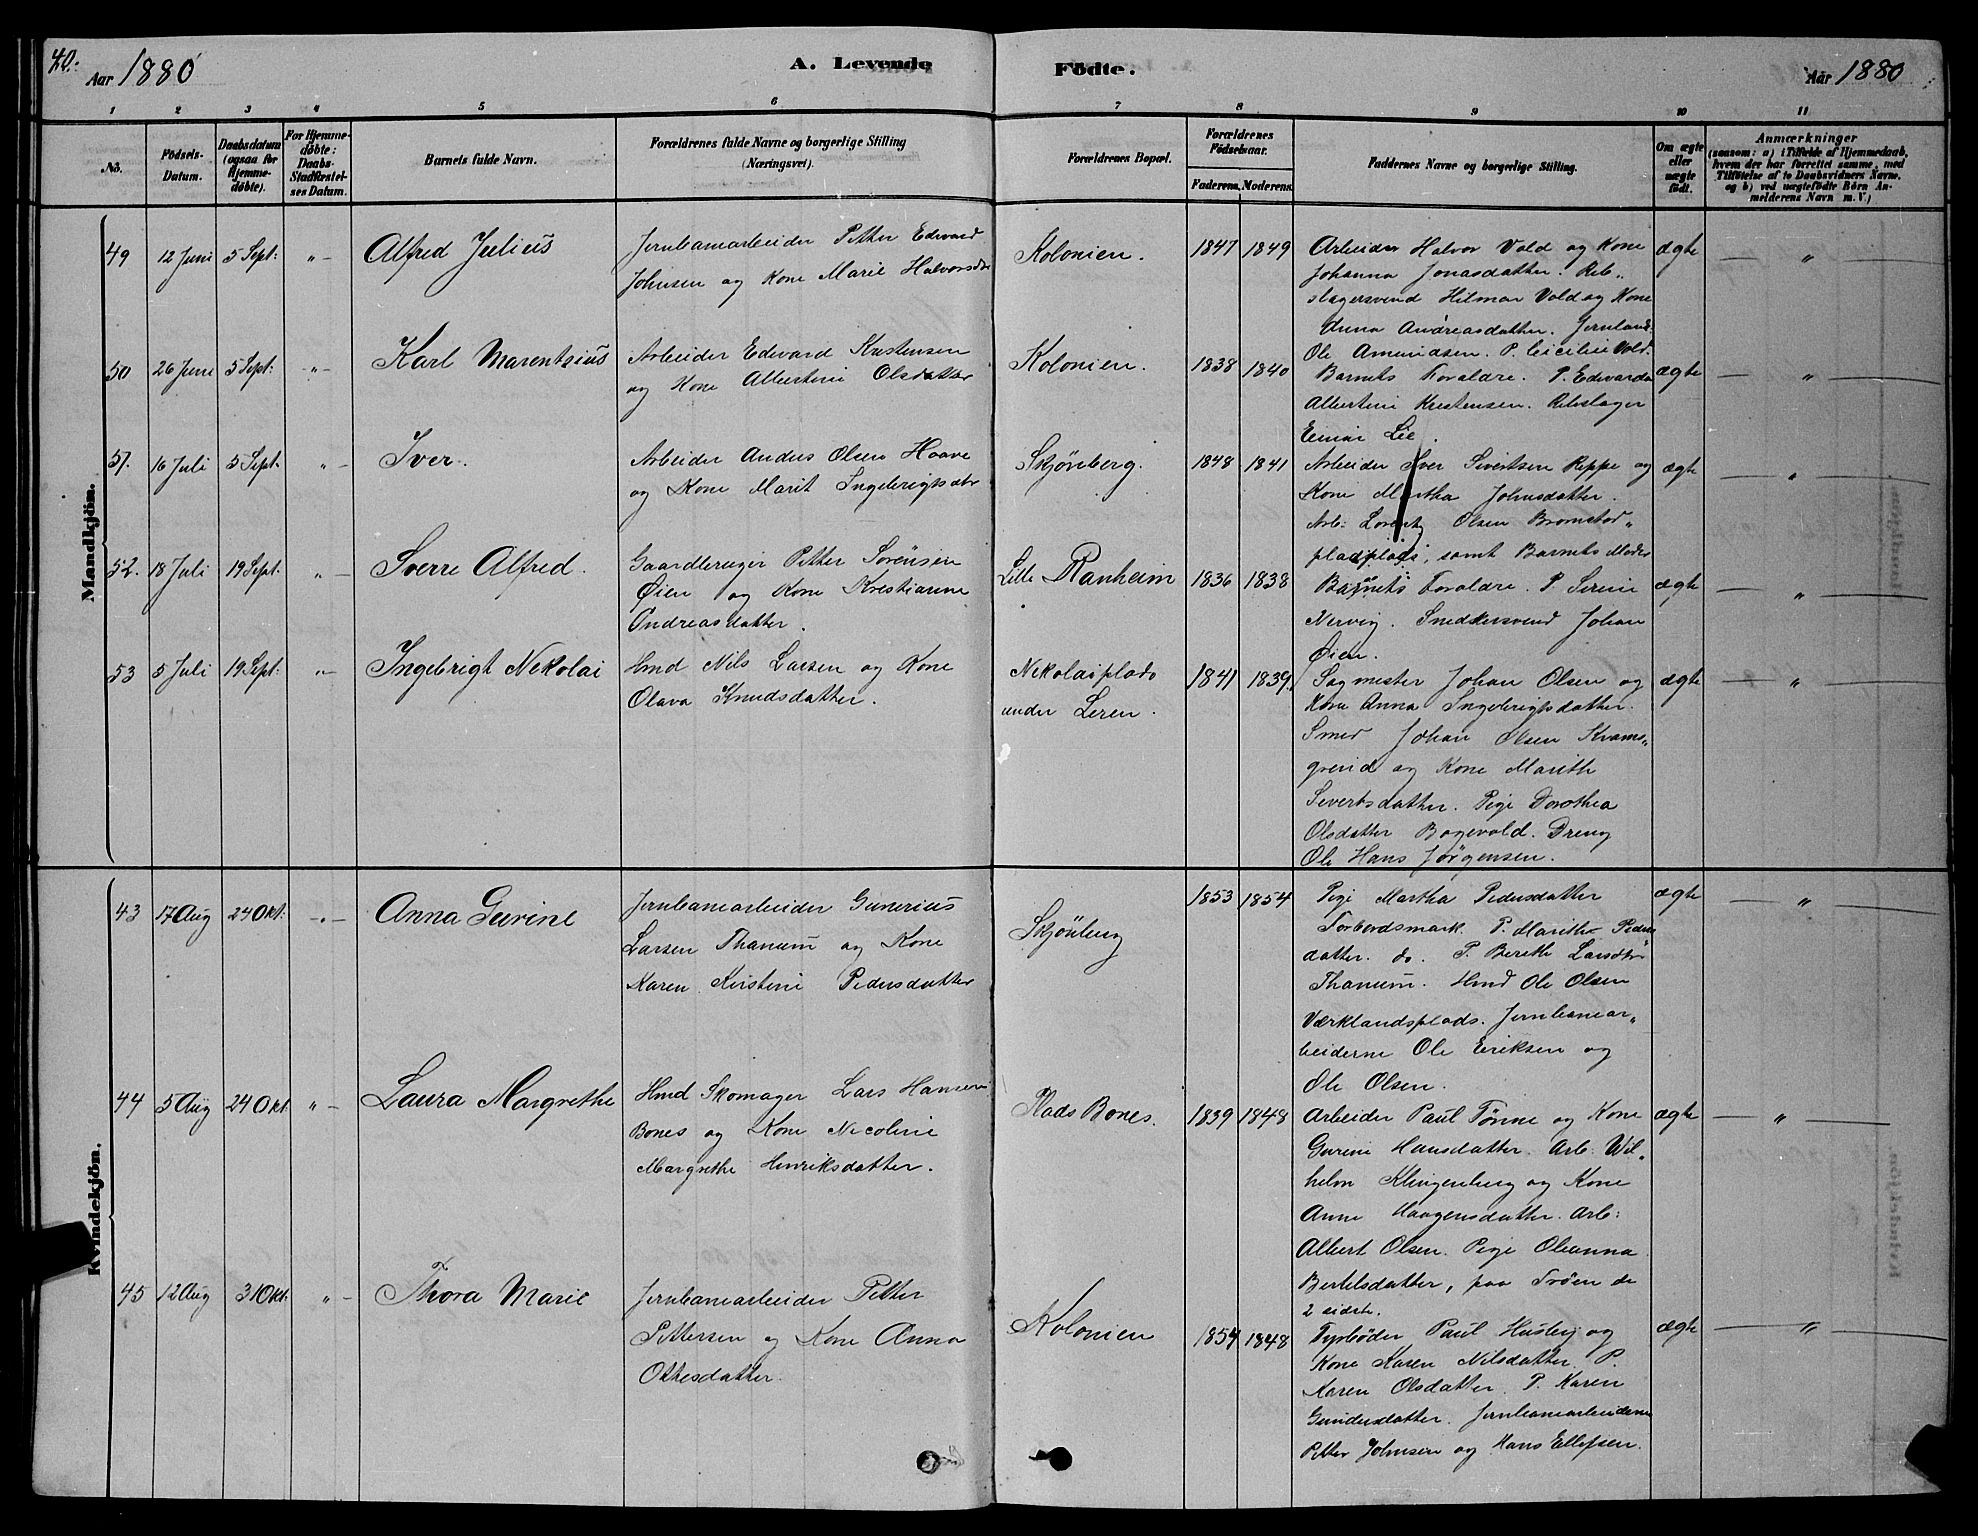 40.
Aar 1880
A. Levende
Födte.
Aar 1880
1 2 3 4 5 6 7 8 9 10 11
No.
Födsels-
Datum.
Daabsdatum
(ogsaa for
Hjemme-
döbte).
For Hjemme-
döbte:
Daabs-
Stadfæstel-
ses Datum.
Barnets fulde Navn.
Forældrenes fulde Navne og borgerlige Stilling
(Næringsvei).
Forældrenes Bopæl.
Forældrenes
Födselsaar.
Faderens. Moderens.
Faddernes Navne og borgerlige Stilling.
Om ægte
eller
uægte
födt.
Anmærkninger
(saasom: a) i Tilfælde af Hjemmedaab,
hvem der har forrettet samme, med
Tilföielse af to Daabsvidners Navne,
og b) ved uægtefödte Börn An-
melderens Navn m. V.)
Mandkjön.
49 12 Juni 5 Sept: " Alfred Julius
Jernbanearbeider Petter Edvard
Johnsen og Kone Marie Halvorsdtr
Kolonien. 1847 1849
Arbeider Halvor Vold og Kone
Johanna Jonasdatter. Reb-
slagersvend Hilmar Vold og Kone
Anna Andreasdatter. Jernban
Ole Amundsen. P. Cicilie Vold.
ægte "
50 26 Juni 5 Sept: " Karl Marentzius
Arbeider Edvard Kristensen
og Kone Albertine Olsdatter
Kolonien. 1838 1840
Barnets Forældre. P. Edvarda
Albertine Kristensen. Rebslager
Einar Lie.
ægte "
51. 16 Juli 5 Sept. " Iver.
Arbeider Anders Olsen Haave
og Kone Marit Ingebrigtsdtr
Skjönberg. 1848 1841
Arbeider Iver Sivertsen Reppe og
Kone Martha Johnsdatter.
Arb: Lorentz Olsen Bromstad-
pladsplads, samt Barnets Moder
ægte "
52. 18 Juli 19 Sept. " Sverre Alfred.
Gaardbruger Petter Sörensen
Öien og Kone Kristianne
Andreasdatter.
Lille Ranheim 1836 1838
Barnets Forældre. P. Serine
Nervig. Snedkersvend Johan
Öien.
ægte "
53 5 Juli 19 Sept: " Ingebrigt Nekolai
Hmd Nils Larsen og Kone
Olava Knudsdatter.
Nekolaiplads
under Leren. 1841 1839.
Sagmester Johan Olsen og
Kone Anna Ingebrigtsdatter.
Smed Johan Olsen Kvams-
grend og Kone Marith
Sivertsdatter. Pige Dorothea
Olsdatter Bagevold. Dreng
Ole Hans Jörgensen.
ægte "
Kvindekjön.
43 17 Aug 24 Okt: " Anna Gurine
Jernbanearbeider Gunerius
Larsen Thanum og Kone
Karen Kirstine Pedersdatter
Skjönberg 1853 1854
Pige Martha Pedersdatter
Torbordsmark. P. Marith Peders
datter. do. P. Berith Larsdtr
Thanum. Hmd Ole Olsen
Værklandsplads. Jernbanear-
beiderne Ole Eriksen og
Ole Olsen.
ægte "
44 5 Aug 24 Okt. " Laura Margrethe
Hmd Skomager Lars Hansen
Bones og Kone Nicoline
Margrethe Henriksdatter.
Plads Bones. 1839 1848
Arbeider Paul Tönne og Kone
Gurine Hansdatter. Arb. Wil-
helm Klingenberg og Kone
Anne Haagensdatter. Arb:
Albert Olsen. Pige Oleanna
Bertelsdatter, paa Tröen de
2 sidste.
ægte "
45 12 Aug 31 Okt. " Thora Marie
Jernbanearbeider Petter
Pettersen og Kone Anna
Ottesdatter.
Kolonien 1854 1848
Fyrböder Paul Husby og
Kone Karen Nilsdatter. P.
Karen Olsdatter. P. Karen
Gundersdatter. Jernbanearbeiderne
Petter Johnsen og Hans Ellefsen.
ægte "